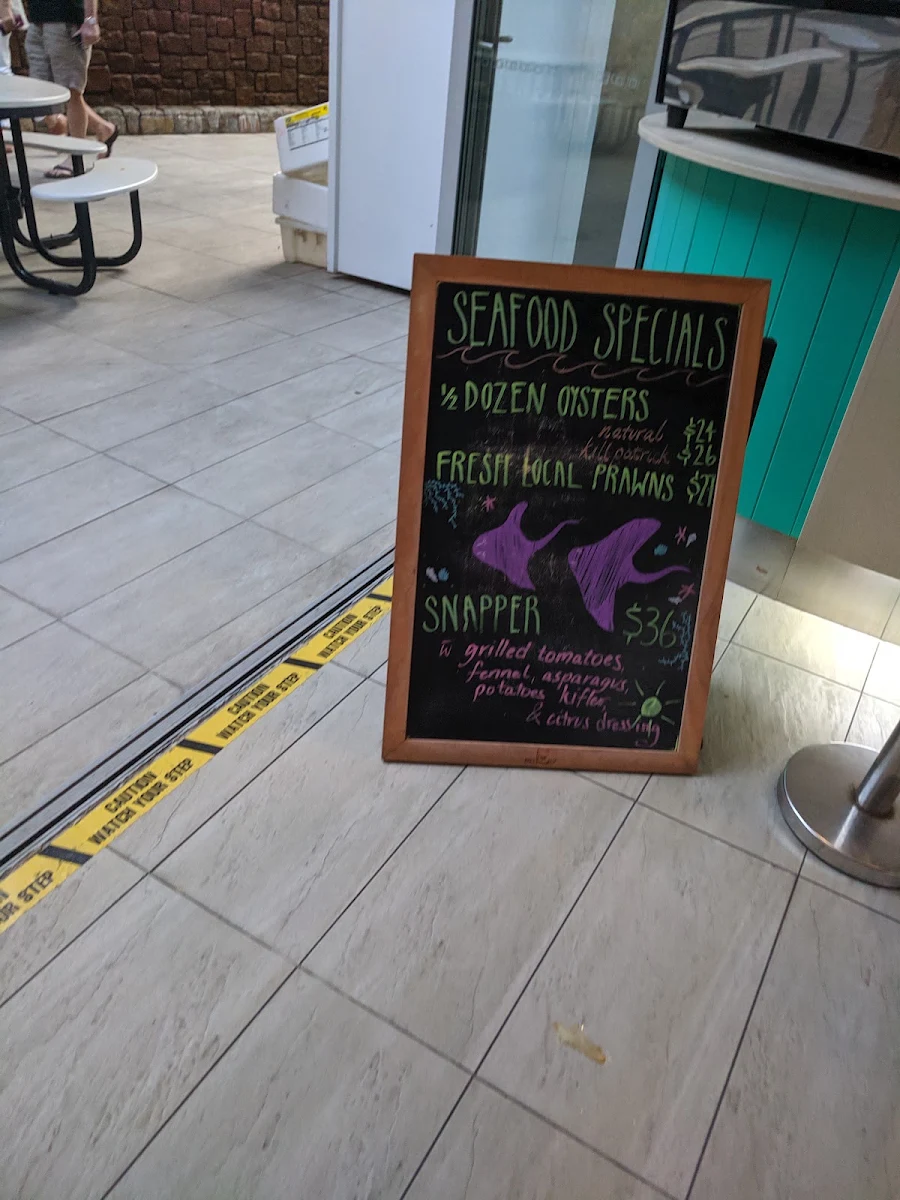 SEAFOOD SPECIALS
½ DOZEN OYSTERS
natural $24
killpatrick $26
FRESH LOCAL PRAWNS
SNAPPER $36
w grilled tomatoes,
fennel, asparagus,
potatoes kifler,
& citrus dressing
CAUTION
WATCH YOUR STEP
CAUTION
WATCH YOUR STEP
CAUTION
WATCH YOUR STEP
STEP